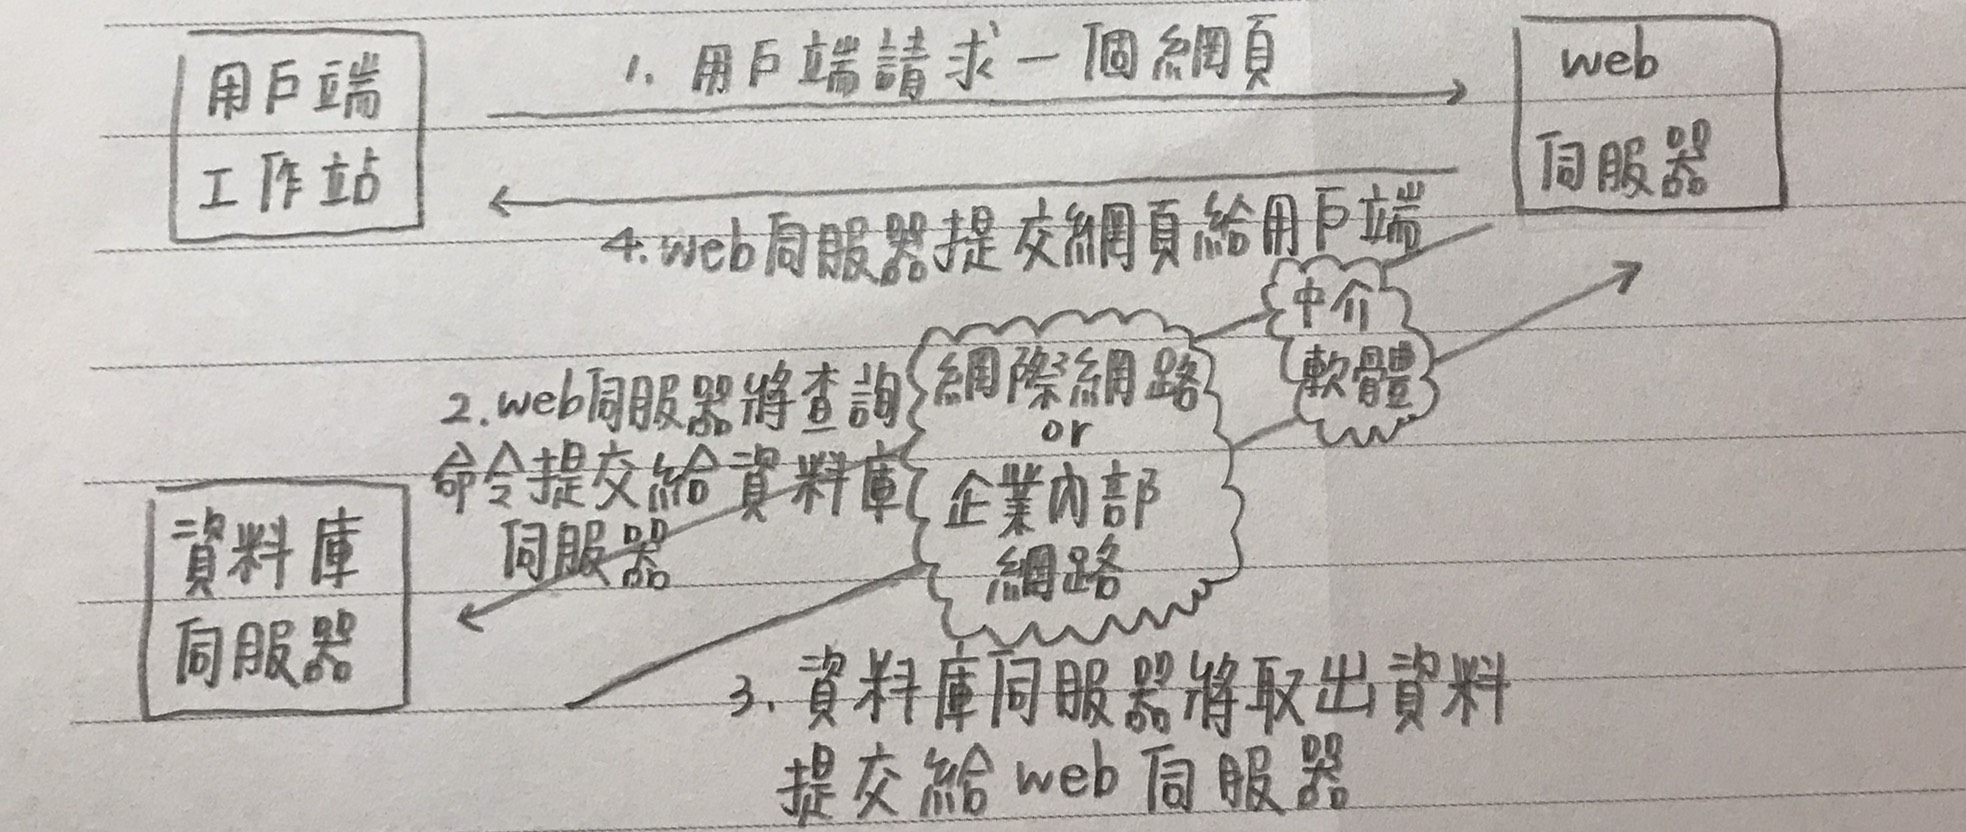 用戶端
工作站
1. 用戶端請求一個網頁
web
伺服器
4.web伺服器提交網頁給用戶端
中介
軟體
網際網路
or
企業內部
網路
2.web伺服器將查詢
命令提交給資料庫
伺服器
資料庫
伺服器
3. 資料庫伺服器將取出資料
提交給web伺服器